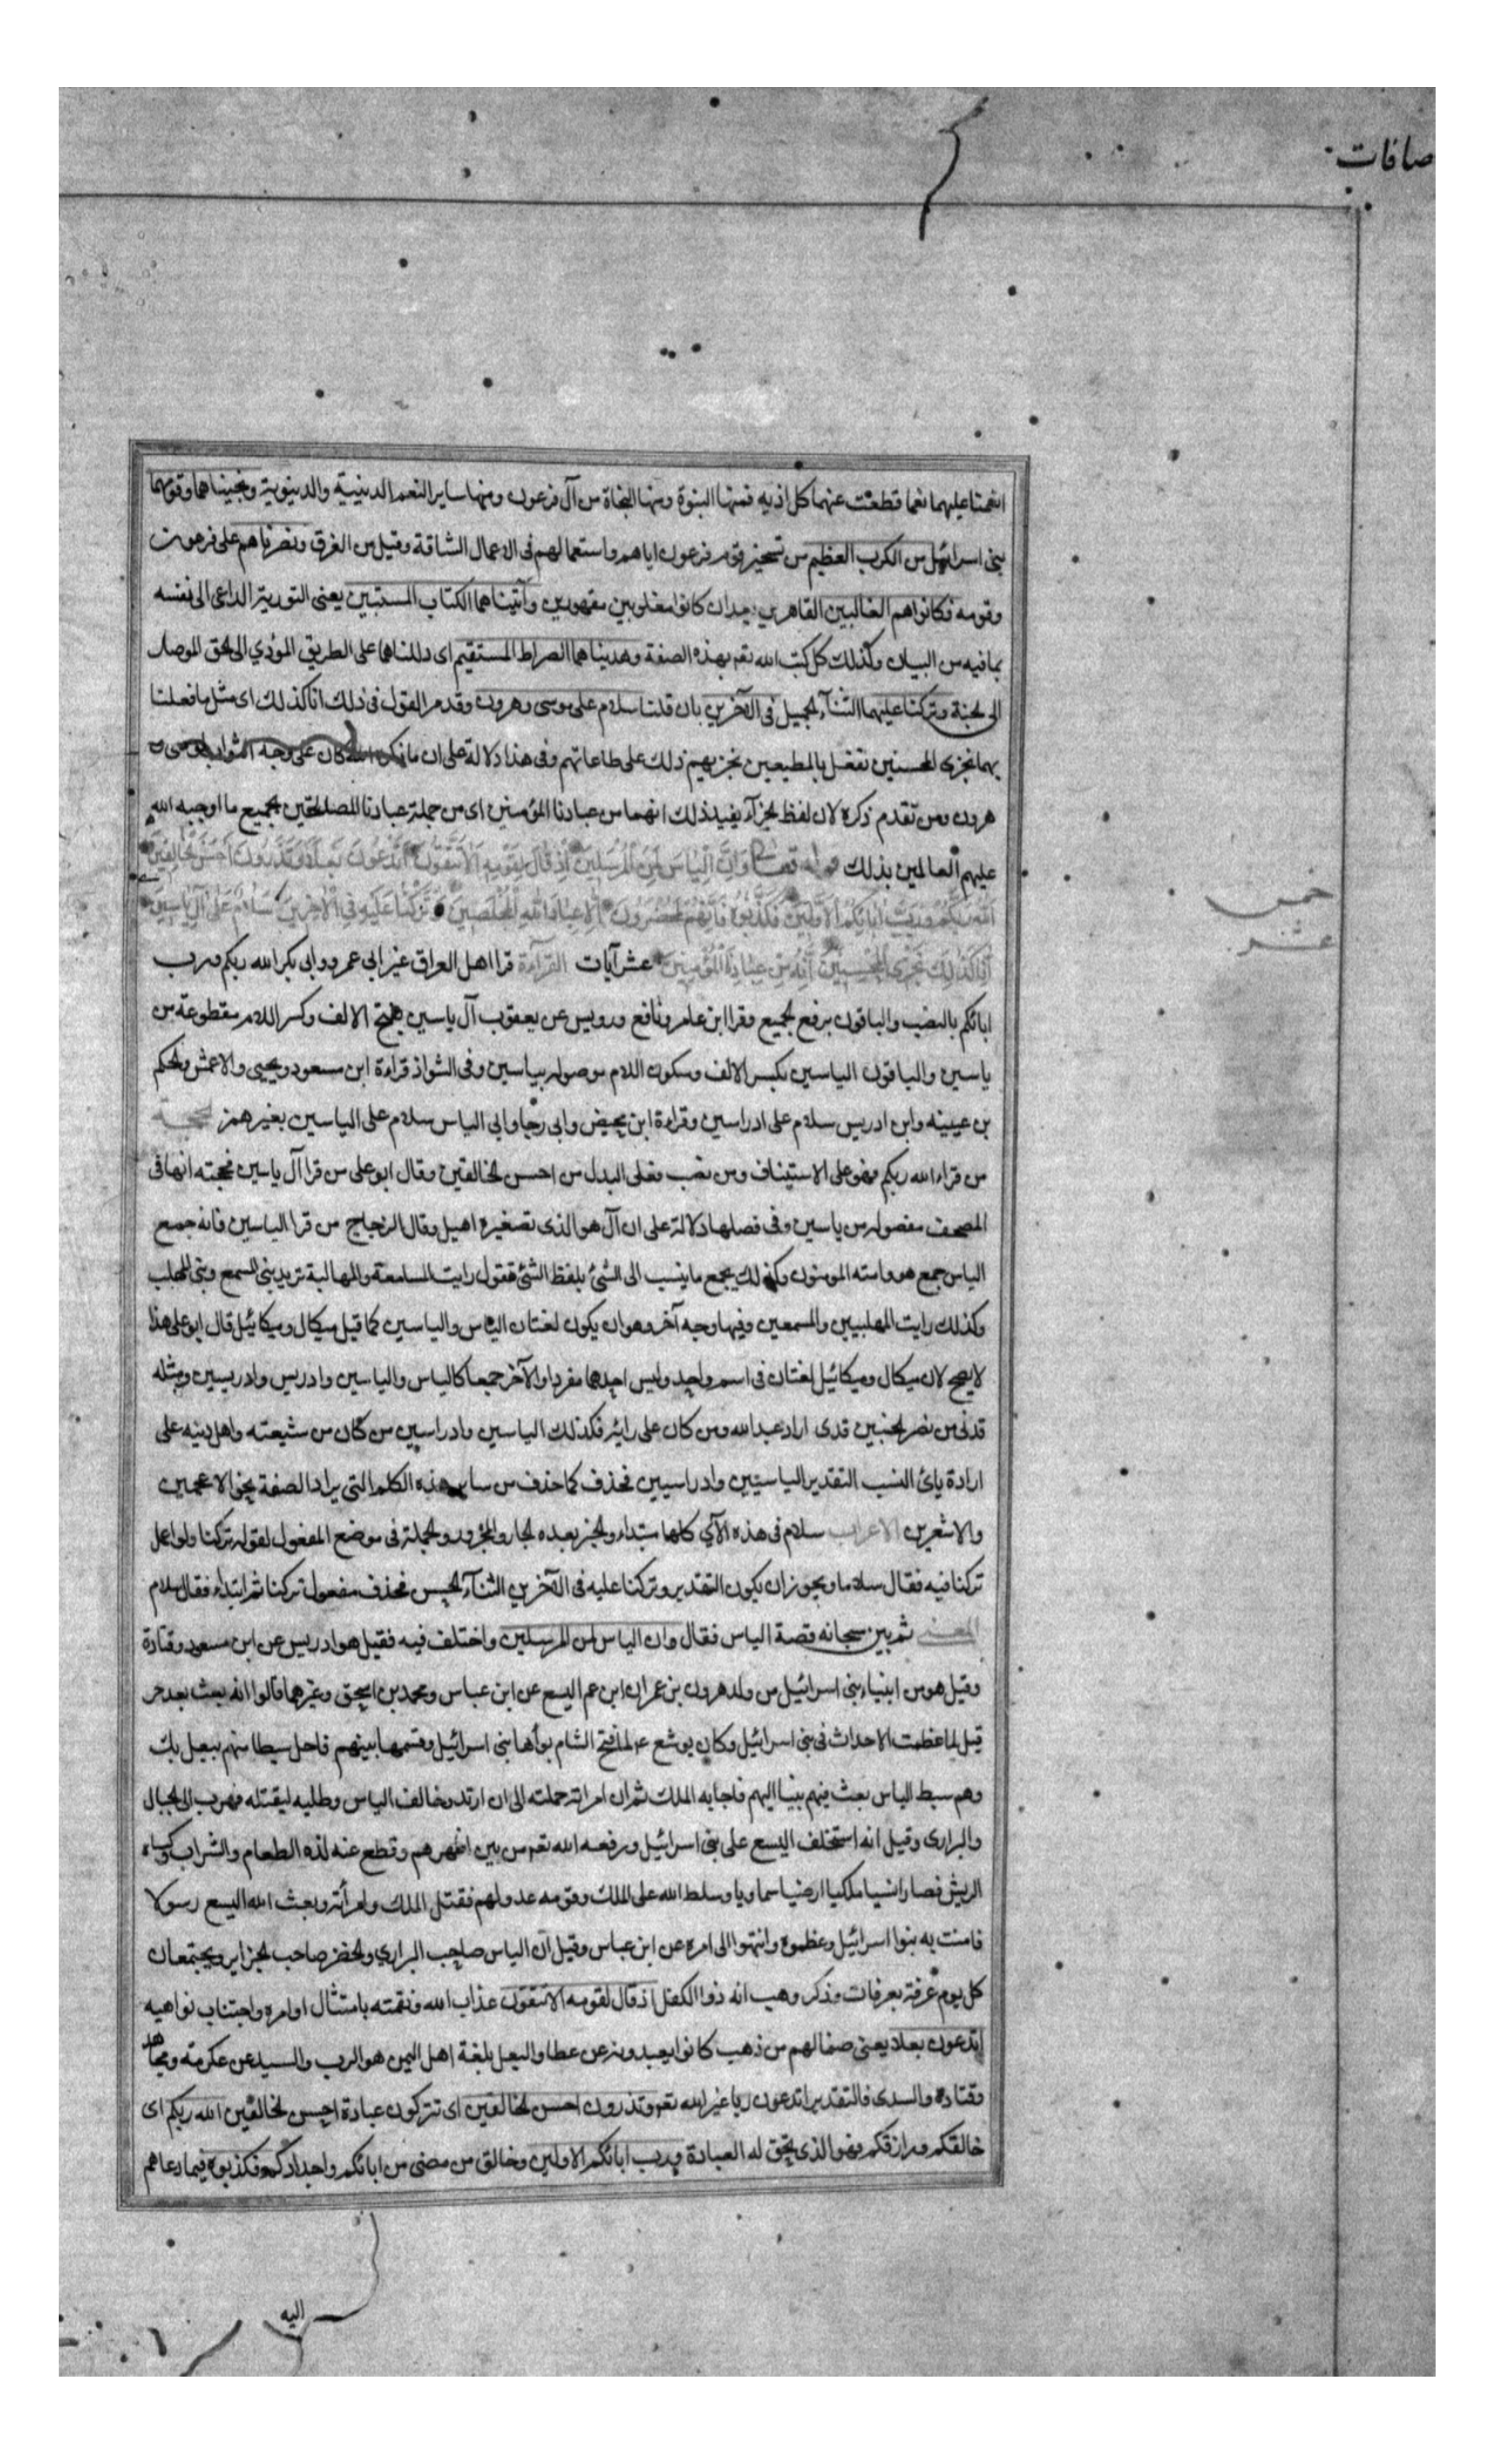 صافات
انعمنا عليهما نعما قطعت عنهما كل اذيه فمنها النبوة ومنها النجاة من آل فرعون ومنها ساير النعم الدينية والدنيوية ونجيناهما وقومهما
بنى اسرائيل من الكرب العظيم من تسخير قوم فرعون اياهم واستعمالهم فى الاعمال الشاقة وقيل من الغرق ونصرناهم على فرعون
وقومه فكانوا هم الغالبين القاهرين بعد ان كانوا مغلوبين مقهورين وآتيناهما الكتاب المستبين يعنى التورية الداعى الى نفسه
بما فيه من البيان وكذلك كل كتب الله تعم بهذه الصفة وهديناهما الصراط المستقيم اى دللناهما على الطريق المؤدي الى الحق الموصل
الى الجنة وتركنا عليهما الثناء الجميل فى الآخرين بان قلنا سلام على موسى وهرون وقد مر القول فى ذلك انا كذلك اى مثل ما فعلنا
بهما نجزى المحسنين نفعل بالمطيعين نجزيهم ذلك على طاعاتهم وفى هذا دلالة على ان ما ذكره الله كان على وجه الثواب لموسى و
هرون ومن تقدم ذكره لان لفظ الجزآء يفيد ذلك انهما من عبادنا المؤمنين اى من جملة عبادنا المصدقين بجميع ما اوجبه الله
عليهم العالمين بذلك قوله تعالى وَاِنَّ اِلْيَاسَ لَمِنَ الْمُرْسَلِينَ اِذْ قَالَ لِقَوْمِهِ اَلَا تَتَّقُونَ اَتَدْعُونَ بَعْلًا وَتَذَرُونَ اَحْسَنَ الْخَالِقِينَ
اَللهَ رَبَّكُمْ وَرَبَّ اٰبَائِكُمُ الْاَوَّلِينَ فَكَذَّبُوهُ فَاِنَّهُمْ لَمُحْضَرُونَ اِلَّا عِبَادَ اللهِ الْمُخْلَصِينَ وَتَرَكْنَا عَلَيْهِ فِي الْاٰخِرِينَ سَلَامٌ عَلَى اِلْ يَاسِينَ
اِنَّا كَذٰلِكَ نَجْزِي الْمُحْسِنِينَ اِنَّهُ مِنْ عِبَادِنَا الْمُؤْمِنِينَ عشر آيات القرآءة قرا اهل العراق غير ابى عمرو وابى بكر الله ربكم ورب
خمس
عشر
ابائكم بالنصب والباقون برفع الجميع وقرا ابن عامر ونافع ورويس عن يعقوب آل ياسين بفتح الالف وكسر اللام مقطوعة من
ياسين والباقون الياسين بكسر الالف وسكون اللام موصولة بياسين وفى الشواذ قراءة ابن مسعود ويحيى والاعمش والحكم
بن عيينه وابن ادريس سلام على ادراسين وقراءة ابن محيض وابى رجا وابى الياس سلام على الياسين بغير همز الحجة
من قراء الله ربكم فهو على الاستيناف ومن نصب فعلى البدل من احسن الخالقين وقال ابو على من قرا آل ياسين فحجته انها فى
المصحف مفصولة من ياسين وفى فصلها دلالة على ان آل هو الذى تصغيره اهيل وقال الزجاج من قرا الياسين فانه جمع
الياس جمع هو وامته المومنون وكذلك يجمع ما ينسب الى الشئ بلفظ الشئ فتقول رايت المسامعة والمهالبة تريد بنى المسمع وبنى المهلب
وكذلك رايت المهلبيين والمسمعين وفيها وجه آخر وهو ان يكون لغتان الياس والياسين كما قيل ميكال وميكائيل قال ابو على هذا
لا يصح لان ميكال وميكائيل لغتان فى اسم واحد وليس احدهما مفردا والآخر جمعا كالياس والياسين وادريس وادريسين ومثله
قدنى من نصر الخبيبين قدى اراد عبدالله ومن كان على رايه فكذلك الياسين وادراسين من كان من شيعته واهل دينه على
ارادة يائ النسب التقدير الياسيين وادراسيين فحذف كما حذف من ساير هذه الكلم التى يراد الصفة نحو الاعجمين
والاشعرين الاعراب سلام فى هذه الآي كلها مبتداء والخبر بعده الجار والمجرور والجملة فى موضع المفعول لقوله تركنا ولو اعمل
تركنا فيه فقال سلاما ويجوز ان يكون التقدير وتركنا عليه فى الآخرين الثنآء الحسن فحذف مفعول تركنا ثم ابتداء فقال سلام
المعنى ثم بين سبحانه قصة الياس فقال وان الياس لمن المرسلين واختلف فيه فقيل هو ادريس عن ابن مسعود وقتادة
وقيل هو من انبياء بنى اسرائيل من ولد هرون بن عمران ابن عم اليسع عن ابن عباس ومحمد بن اسحق وغيرهما قالوا انه بعث بعد حز
قيل لما عظمت الاحداث فى بنى اسرائيل وكان يوشع ع لما فتح الشام بوأها بنى اسرائيل وقسمها بينهم فاحل سبطا منهم ببعل بك
وهم سبط الياس بعث فيهم نبيا اليهم فاجابه الملك ثم ان امراته حملته الى ان ارتد وخالف الياس وطلبه ليقتله فهرب الى الجبال
والبرارى وقيل انه استخلف اليسع على بنى اسرائيل ورفعه الله تعم من بين اظهرهم وقطع عنه لذة الطعام والشراب وكساه
الريش فصار انسيا ملكيا ارضيا سماويا وسلط الله على الملك وقومه عدوا لهم فقتل الملك وامرأته وبعث الله اليسع رسولا
فامنت به بنوا اسرائيل وعظموه وانتهوا الى امره عن ابن عباس وقيل ان الياس صاحب البراري والخضر صاحب الجزاير ويجتمعان
كل يوم عرفة بعرفات وذكر وهب انه ذوا الكفل اذ قال لقومه الا تتقون عذاب الله ونقمته بامتثال اوامره واجتناب نواهيه
اتدعون بعلا يعنى صنما لهم من ذهب كانوا يعبدونه عن عطا والبعل بلغة اهل اليمن هو الرب والسيد عن عكرمه ومجاهد
وقتاده والسدى فالتقدير اتدعون ربا غير الله تعم وتذرون احسن الخالقين اى تتركون عبادة احسن الخالقين الله ربكم اى
خالقكم ورازقكم فهو الذى يحق له العبادة ورب ابائكم الاولين وخالق من مضى من ابائكم واجدادكم فكذبوه فيما دعاهم
اليه